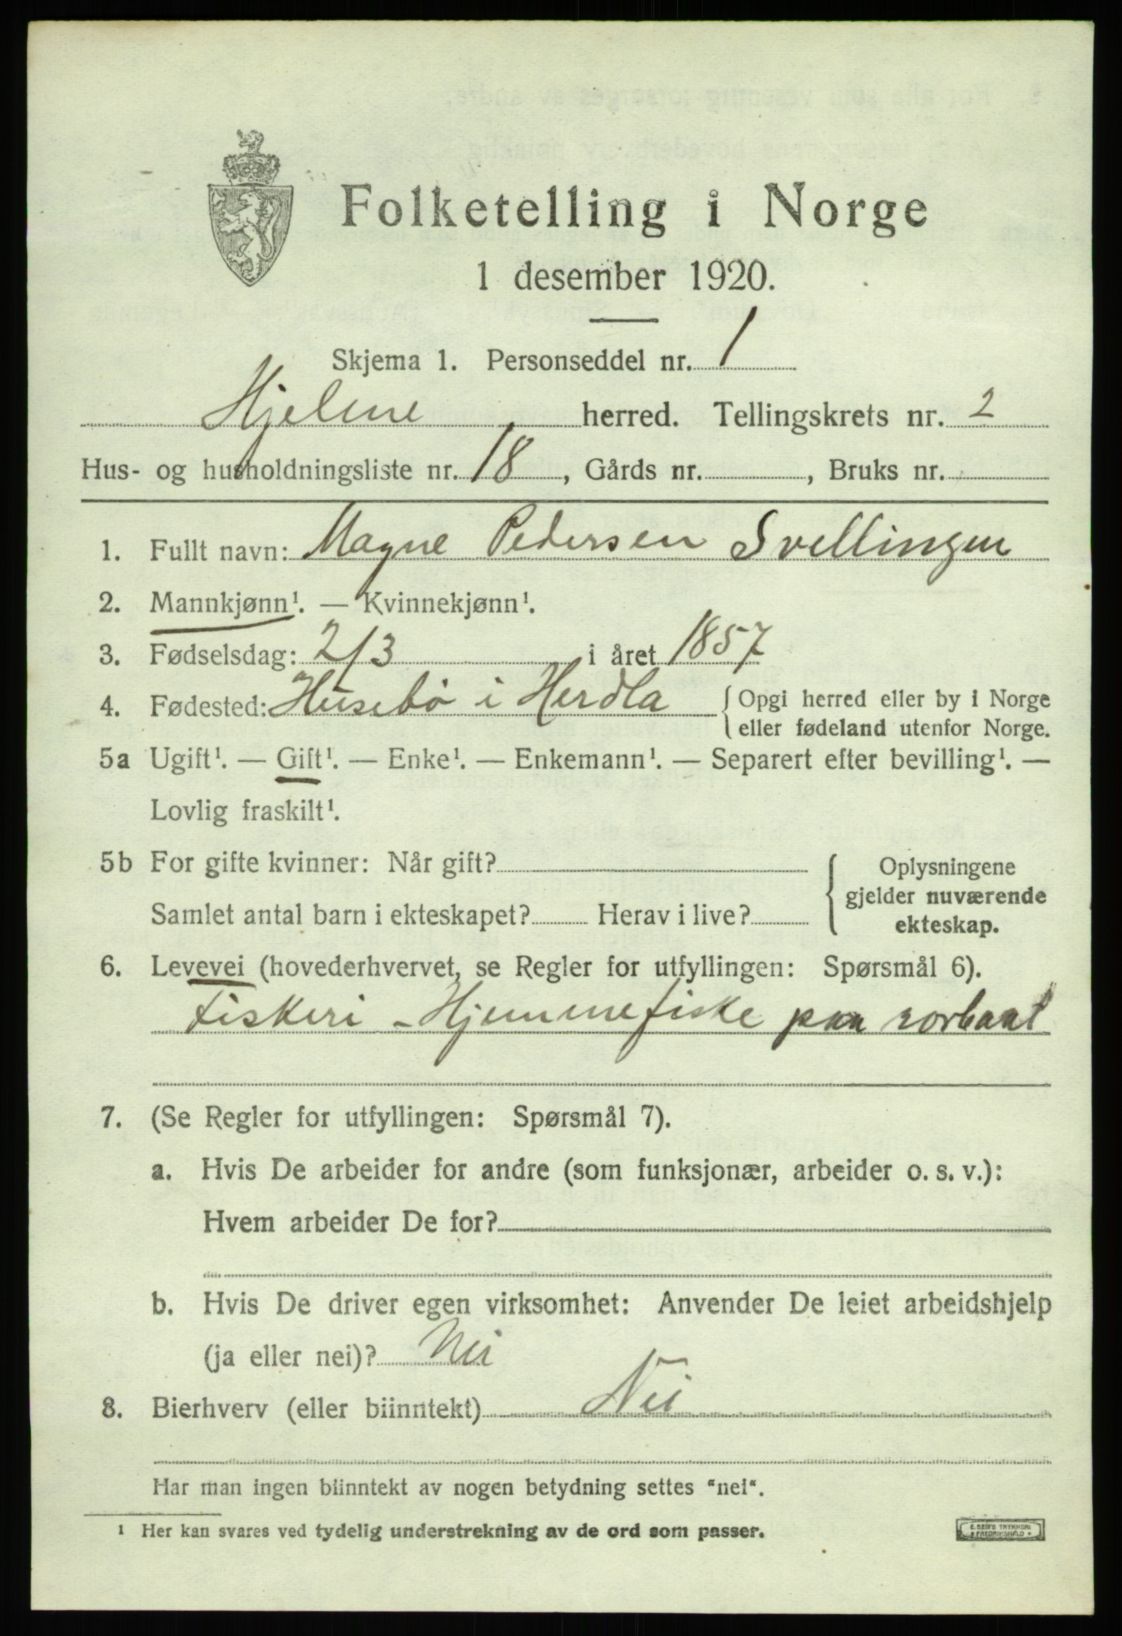 Folketelling i Norge
1 desember 1920.
Skjema 1. Personseddel nr. 1
Hjelme herred. Tellingskrets nr. 2
Hus- og husholdningsliste nr. 18, Gårds nr. , Bruks nr.
1. Fullt navn: Magne Pedersen Svellingen
2. Mannkjønn¹. — Kvinnekjønn¹.
3. Fødselsdag: 2/3 i året 1857
4. Fødested: Husebø i Herdla {Opgi herred eller by i Norge
eller fødeland utenfor Norge.
5a Ugift¹. — Gift¹. — Enke¹. — Enkemann¹. — Separert efter bevilling¹. —
Lovlig fraskilt¹.
5b For gifte kvinner: Når gift?
Samlet antal barn i ekteskapet? Herav i live?
{Oplysningene
gjelder nuværende
ekteskap.
6. Levevei (hovederhvervet, se Regler for utfyllingen: Spørsmål 6).
Fiskeri - Hjemmefiske paa rorbaat
7. (Se Regler for utfyllingen: Spørsmål 7).
a. Hvis De arbeider for andre (som funksjonær, arbeider o. s. v.):
Hvem arbeider De for?
b. Hvis De driver egen virksomhet: Anvender De leiet arbeidshjelp
(ja eller nei)? Nei
8. Bierhverv (eller biinntekt) Nei
Har man ingen biinntekt av nogen betydning settes "nei".
¹ Her kan svares ved tydelig understrekning av de ord som passer.